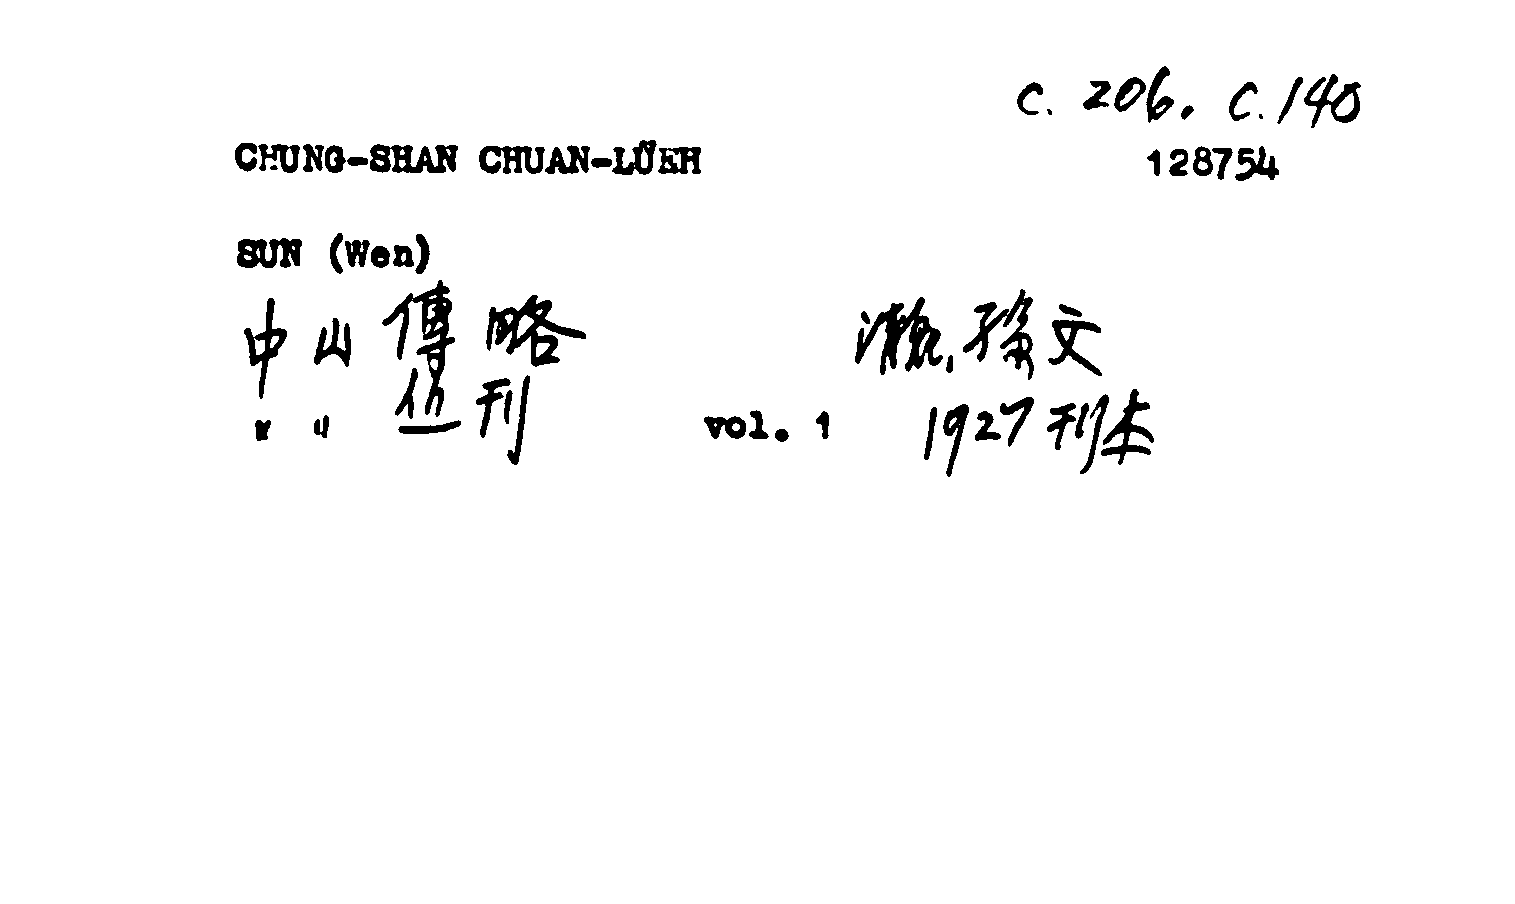 C. 206. C. 140
CHUNG-SHAN CHUAN-LÜEH 128754
SUN (Wen)
中山傳略 孫文
〃 〃 丛刊 vol. 1 1927刊本